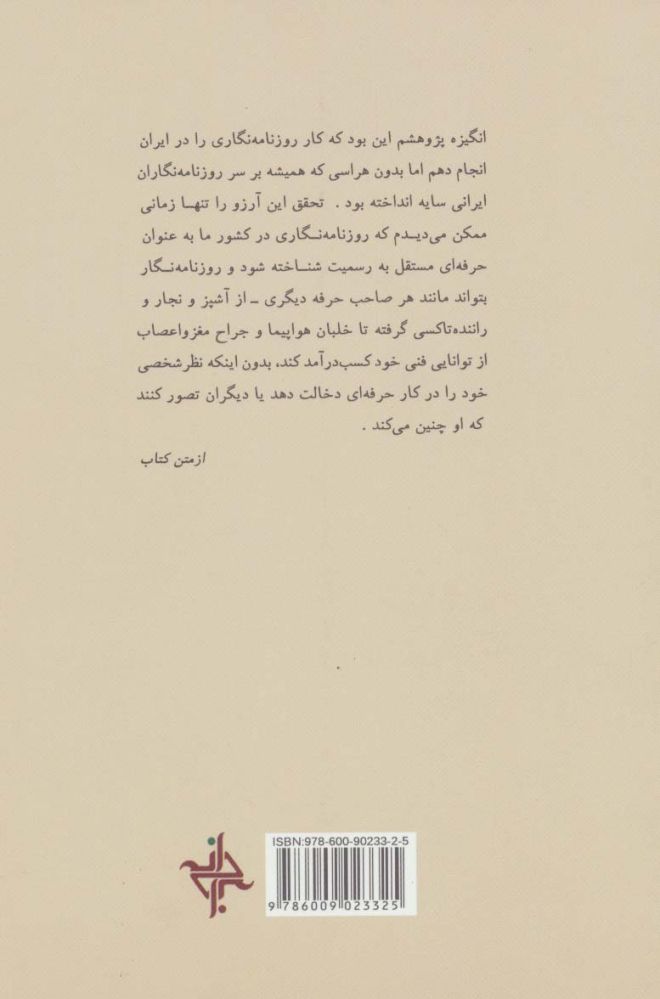 انگیزه پژوهشم این بود که کار روزنامه‌نگاری را در ایران
انجام دهم اما بدون هراسی که همیشه بر سر روزنامه‌نگاران
ایرانی سایه انداخته بود . تحقق این آرزو را تنهـا زمانی
ممکن می‌دیـدم که روزنامه‌نـگاری در کشور ما به عنوان
حرفه‌ای مستقل به رسمیت شنـاخته شود و روزنامه‌نـگار
بتواند مانند هر صاحب حرفه دیگری ـ از آشپز و نجار و
راننده‌تاکسی گرفته تا خلبان هواپیما و جراح مغزواعصاب
از توانایی فنی خود کسب‌درآمد کند، بدون اینکه نظرشخصی
خود را در کار حرفه‌ای دخالت دهد یا دیگران تصور کنند
که او چنین می‌کند .
ازمتن کتاب
ISBN:978-600-90233-2-5
9 786009 023325